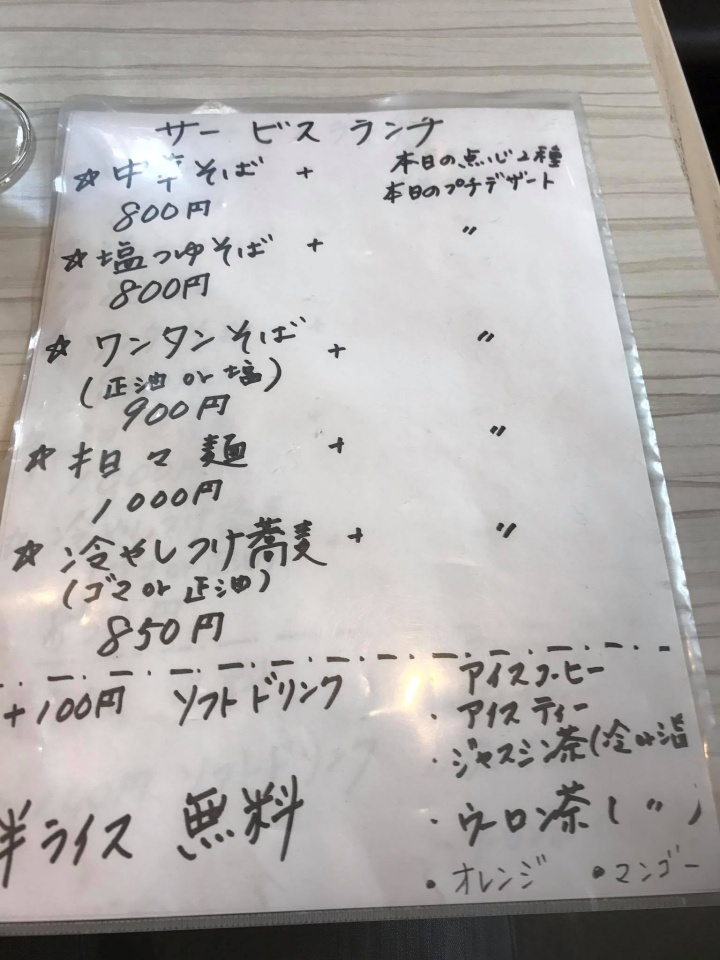 サービスランチ
☆中華そば + 本日の点心2種
本日のプチデザート
800円
☆塩つゆそば + 〃
800円
☆ワンタンそば + 〃
(正油 or 塩)
900円
☆担々麺 + 〃
1000円
☆冷やしつけ蕎麦 + 〃
(ゴマ or 正油)
850円
+100円 ソフトドリンク ・アイスコーヒー
・アイスティー
・ジャスミン茶(冷 or 温
・ウーロン茶( 〃 )
半ライス 無料
•オレンジ •マンゴー